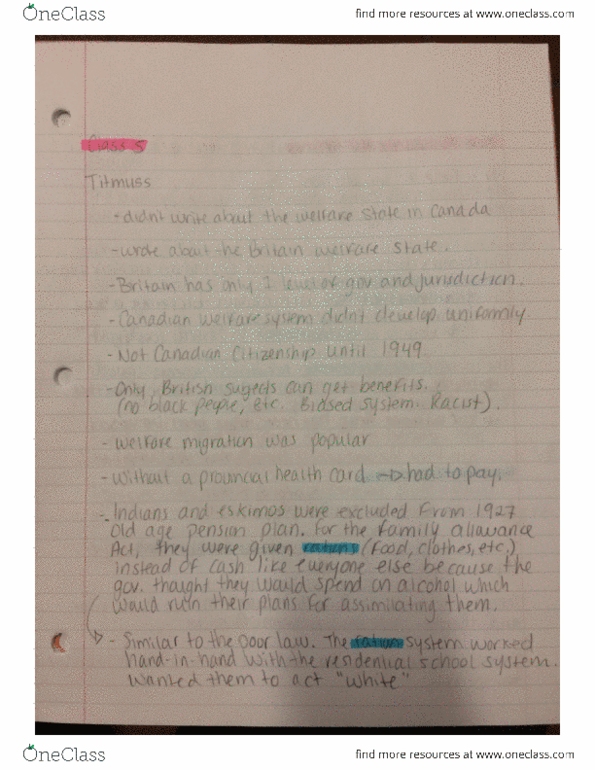 OneClass
find more resources at www.oneclass.com
Class 5
Titmuss
- didnt write about the welfare state in Canada
- wrote about the Britain welfare state.
- Britain has only 1 level of gov and jurisdiction.
- Canadian welfare system didnt develop uniformly.
- Not Canadian Citizenship until 1949
- Only British sugects can get benefits.
(no black people, etc. Biased system. Racist).
- welfare migration was popular
- without a provincial health card → had to pay.
- Indians and eskimos were excluded from 1927
old age pension plan. For the family allowance
Act, they were given rations (food, clothes, etc.)
instead of cash like everyone else because the
gov. thought they would spend on alcohol which
would ruin their plans for assimilating them.
- Similar to the poor law. The ration system worked
hand-in-hand with the residential school system.
Wanted them to act "white"
OneClass
find more resources at www.oneclass.com